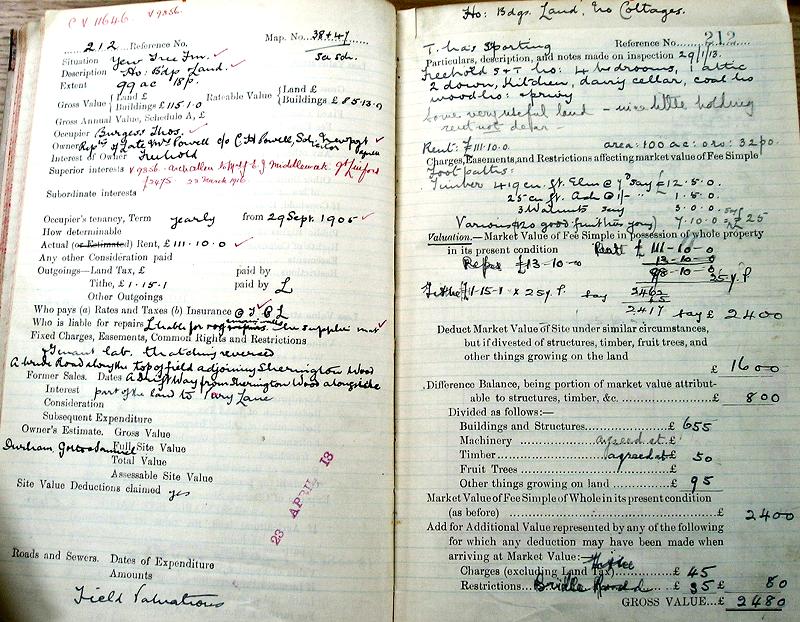 C V 11646 V 9356.
212 Reference No. Map. No. 38+47
Situation Yew Tree Fm.
Description Ho: Bdgs. Land.
Extent 99 ac 18 p.
Gross Value { Land £ Buildings £ 115.1.0 Rateable Value { Land £ Buildings £ 85.13.0
Gross Annual Value, Schedule A, £
Occupier Burgess Thos.
Owner Reps of late Mrs Powell c/o C H Powell, Solicitor Newport Pagnell
Interest of Owner Freehold
Superior interests V 9356.
Subordinate interests
Occupier's tenancy, Term yearly from 29 Sept. 1905
How determinable
Actual (or Estimated) Rent, £ 111.10.0
Any other Consideration paid
Outgoings—Land Tax, £ paid by
Tithe, £ 1.15.1 paid by L
Other Outgoings
Who pays (a) Rates and Taxes (b) Insurance
Who is liable for repairs
Fixed Charges, Easements, Common Rights and Restrictions
Tenant lab. thatching reserved
A bridle Road along the top of field adjoining Sherington Wood
Former Sales. Dates A Drift Way from Sherington Wood alongside
Interest part of the land to Lane
Consideration
Subsequent Expenditure
Owner's Estimate. Gross Value
Full Site Value
Total Value
Assessable Site Value
Site Value Deductions claimed yes
23 APRIL 13
Roads and Sewers. Dates of Expenditure
Amounts
Field Valuations
Ho: Bdgs. Land, no Cottages.
T. has Sporting Reference No. 212
Particulars, description, and notes made on inspection 29/1/13.
Freehold S & T ho: 4 bedrooms, 1 attic
2 down, Kitchen, dairy cellar, coal ho
wood ho:
Some very useful land – nice little holding
rent not dear –
Rent: £111.10.0. area: 100 ac: 0 ro: 32 po.
Charges, Easements, and Restrictions affecting market value of Fee Simple
Foot paths:
Timber 419 cu. ft. Elm @ 7d say £ 12.5.0.
25 cu ft. Ash @ 1/- 1.5.0.
3 Walnuts say 3.0.0.
Various (20 good fruit trees young) 7.10.0 = £25
Valuation.—Market Value of Fee Simple in possession of whole property
in its present condition Rent £ 111-10-0
Reprs £13-10-0 13-10-0
98-10-0
25 y.P
Tithe £1-15-1 x 25 y.P. say 2462
45
2417 say £ 2400
Deduct Market Value of Site under similar circumstances,
but if divested of structures, timber, fruit trees, and
other things growing on the land
£ 1600
Difference Balance, being portion of market value attribut-
able to structures, timber, &c. £ 800
Divided as follows:—
Buildings and Structures £ 655
Machinery agreed at £
Timber agreed at £ 50
Fruit Trees £
Other things growing on land £ 95
Market Value of Fee Simple of Whole in its present condition
(as before) £ 2400
Add for Additional Value represented by any of the following
for which any deduction may have been made when
arriving at Market Value:—
Charges (excluding Land Tax) Tithe £ 45
Restrictions Bridle Road £ 35 £ 80
GROSS VALUE...£ 2480